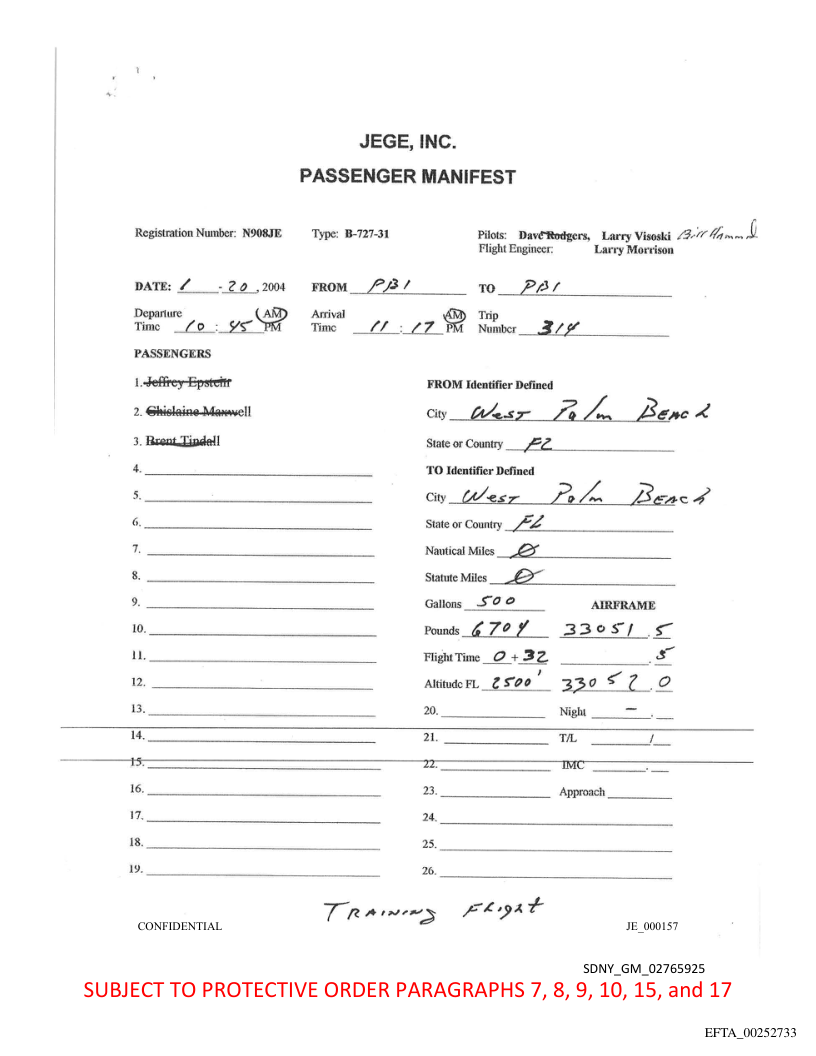 JEGE, INC.
PASSENGER MANIFEST
Registration Number: N908JE Type: B-727-31 Pilots: Dave Rodgers, Larry Visoski Bill Hammond
Flight Engineer: Larry Morrison
DATE: 1 - 20 , 2004 FROM PBI TO PBI
Departure Time 10 : 45 AM PM Arrival Time 11 : 17 AM PM Trip Number 314
PASSENGERS
1. Jeffrey Epstein FROM Identifier Defined
2. Ghislaine Maxwell City West Palm Beach
3. Brent Tindall State or Country FL
4. TO Identifier Defined
5. City West Palm Beach
6. State or Country FL
7. Nautical Miles Ø
8. Statute Miles Ø
9. Gallons 500 AIRFRAME
10. Pounds 6704 33051.5
11. Flight Time 0+32 .5
12. Altitude FL 2500' 33052.0
13. 20. Night - .
14. 21. T/L /
15. 22. IMC .
16. 23. Approach
17. 24.
18. 25.
19. 26.
TRAINING FLIGHT
CONFIDENTIAL JE_000157
SDNY_GM_02765925
SUBJECT TO PROTECTIVE ORDER PARAGRAPHS 7, 8, 9, 10, 15, and 17
EFTA_00252733